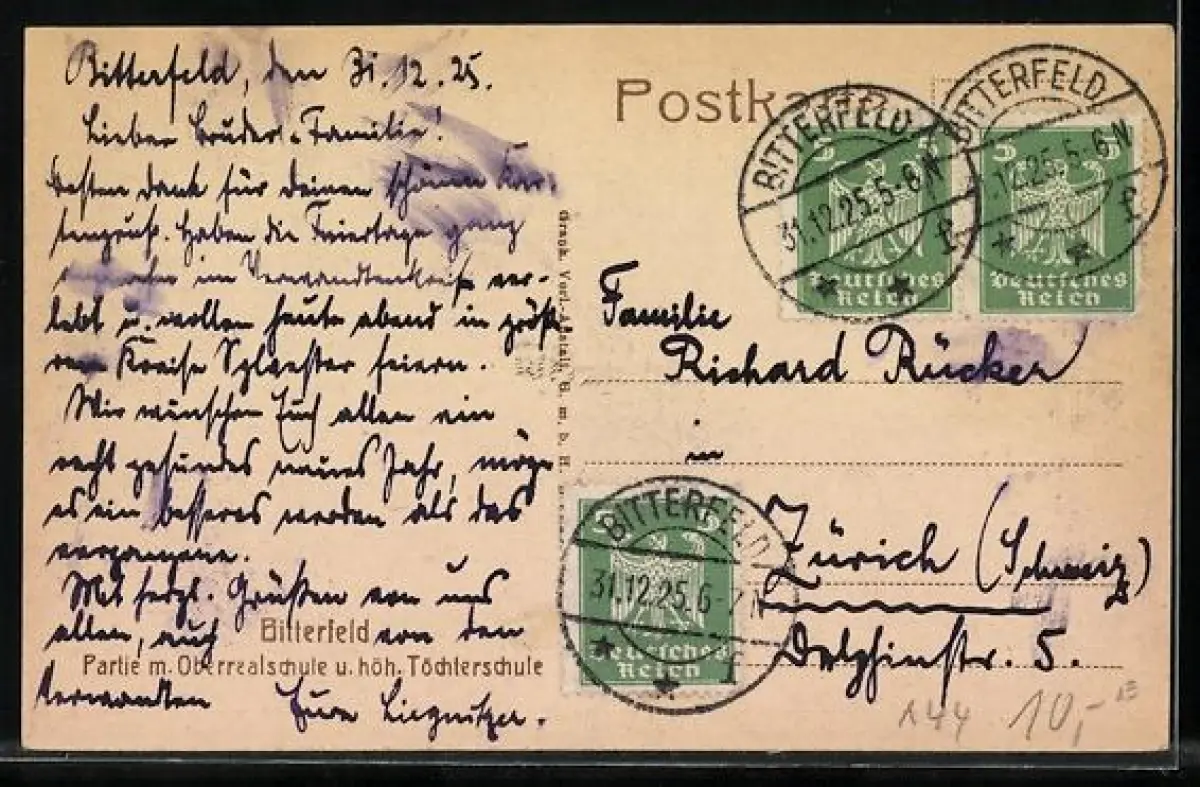 Bitterfeld, den 31.12.25.
Lieber Bruder u. Familie!
Besten Dank für Deinen schönen Kar-
tengruß. Haben die Feiertage ganz
im Verwandtenkreise ver-
lebt u. wollen heute abend in größe-
rem Kreise Sylvester feiern.
Wir wünschen Euch allen ein
recht gesundes neues Jahr, möge
es ein besseres werden als das
vergangene.
Mit herzl. Grüßen von uns
allen, auch von den
Verwandten
Eure Liegnitzer.
Bitterfeld
Partie m. Oberrealschule u. höh. Töchterschule
Postkarte
BITTERFELD
31.12.25.5-6N
f
5 5
Deutsches
Reich
BITTERFELD
.12.25.5-6N
f
5
Deutsches
Reich
Familie
Richard Rücker
in
Zürich (Schweiz)
Delphinstr. 5.
BITTERFELD
31.12.25.6-7N
f
5
Deutsches
Reich
A44 10,-